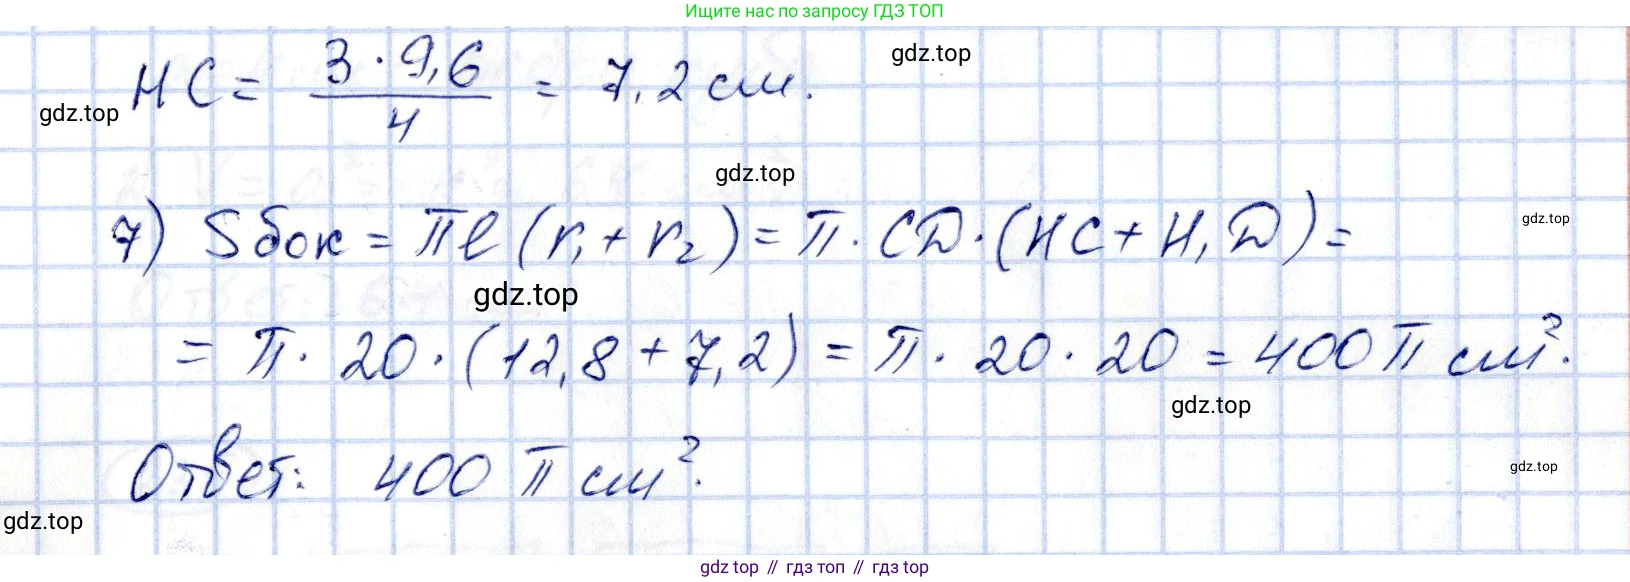 Ищите нас по запросу ГДЗ ТОП
HC = 3 · 9,6 / 4 = 7,2 см.
gdz.top
gdz.top
gdz.top
7) Sбок = πl (r₁ + r₂) = π · CD · (HC + H₁D) =
gdz.top
gdz.top
= π · 20 · (12,8 + 7,2) = π · 20 · 20 = 400π см².
gdz.top
Ответ: 400 π см².
gdz.top
gdz.top
gdz top // гдз топ // гдз top